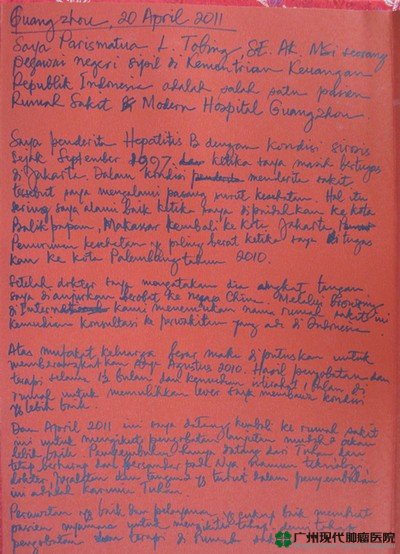 Guangzhou, 20 April 2011
Saya Parismatua L. Tobing, SE. Ak. MSi seorang
pegawai negeri sipil di Kementrian Keuangan
Republik Indonesia adalah salah satu pasien
Rumah Sakit Modern Hospital Guangzhou.
Saya penderita Hepatitis B dengan kondisi sirosis
sejak September 1997. ketika saya masih bertugas
di Jakarta. Dalam kondisi menderita sakit
tersebut saya mengalami pasang surut kesehatan. Hal itu
sering saya alami baik ketika saya dipindahkan ke kota
Balikpapan, Makassar kembali ke kota Jakarta,
Penurunan kesehatan yg paling berat ketika saya ditugas
kan ke kota Palembang tahun 2010.
Setelah dokter saya mengatakan dia angkat tangan
saya dianjurkan berobat ke negara China. Melalui Browsing
di Internet kami menemukan nama rumah sakit ini
kemudian konsultasi ke perwakilan yang ada di Indonesia
Atas mufakat keluarga besar maka diputuskan untuk
memberangkatkan saya Agustus 2010. Hasil pengobatan dan
terapi selama bulan dan kemudian istirahat 1 bulan di
rumah untuk memulihkan lever saya membawa kondisi
yg lebih baik.
Dan April 2011 ini saya datang kembali ke rumah sakit
ini untuk mengikuti pengobatan lanjutan akan
lebih baik. Penyembuhan hanya datang dari Tuhan dan
tetap berharap dan bersandar pada Nya, namun teknologi,
dokter, peralatan dan yg turut dalam penyembuhan
ini adalah karunia Tuhan.
Perawatan yg baik dan pelayanan yg cukup baik membuat
pasien nyaman untuk mengikuti tahap demi tahap
pengobatan dan terapi di Rumah sakit
广州现代肿瘤医院